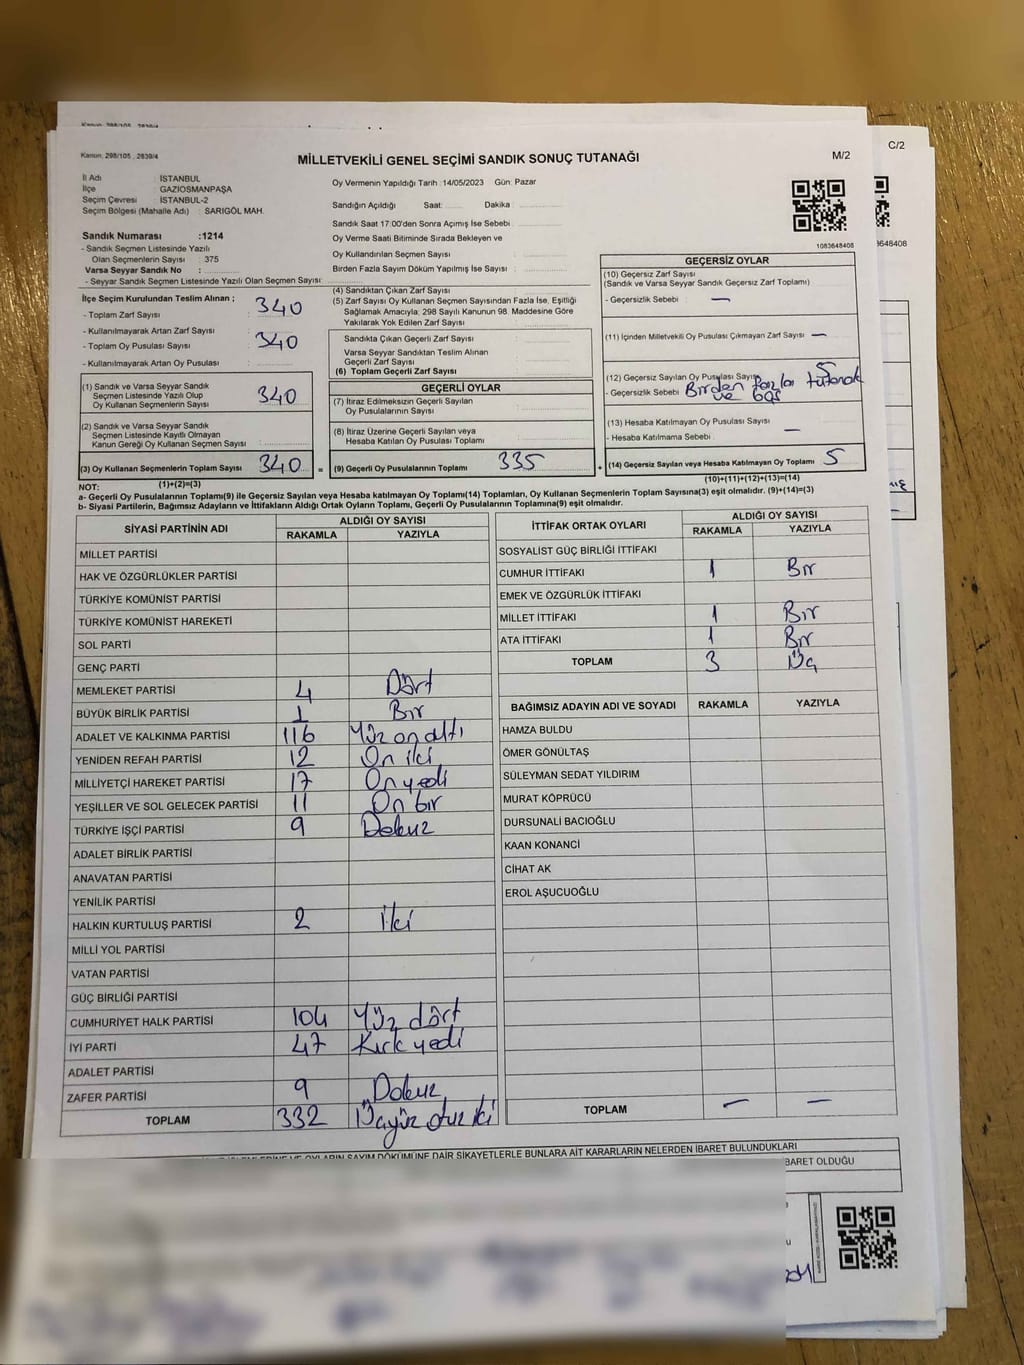 Kanun: 298/105 , 2839/4
MİLLETVEKİLİ GENEL SEÇİMİ SANDIK SONUÇ TUTANAĞI
M/2
C/2
İl Adı : İSTANBUL
İlçe : GAZİOSMANPAŞA
Seçim Çevresi : İSTANBUL-2
Seçim Bölgesi (Mahalle Adı) : SARIGÖL MAH.
Sandık Numarası :1214
- Sandık Seçmen Listesinde Yazılı
Olan Seçmenlerin Sayısı : 375
Varsa Seyyar Sandık No :
- Seyyar Sandık Seçmen Listesinde Yazılı Olan Seçmen Sayısı :
Oy Vermenin Yapıldığı Tarih :14/05/2023 Gün: Pazar
Sandığın Açıldığı Saat: Dakika :
Sandık Saat 17:00'den Sonra Açımış İse Sebebi :
Oy Verme Saati Bitiminde Sırada Bekleyen ve
Oy Kullandırılan Seçmen Sayısı :
Birden Fazla Sayım Döküm Yapılmış İse Sayısı :
1083648408
İlçe Seçim Kurulundan Teslim Alınan ;
- Toplam Zarf Sayısı : 340
- Kullanılmayarak Artan Zarf Sayısı :
- Toplam Oy Pusulası Sayısı : 340
- Kullanılmayarak Artan Oy Pusulası :
(1) Sandık ve Varsa Seyyar Sandık
Seçmen Listesinde Yazılı Olup
Oy Kullanan Seçmenlerin Sayısı : 340
(2) Sandık ve Varsa Seyyar Sandık
Seçmen Listesinde Kayıtlı Olmayan
Kanun Gereği Oy Kullanan Seçmen Sayısı :
(3) Oy Kullanan Seçmenlerin Toplam Sayısı : 340 =
(1)+(2)=(3)
(4) Sandıktan Çıkan Zarf Sayısı :
(5) Zarf Sayısı Oy Kullanan Seçmen Sayısından Fazla İse, Eşitliği
Sağlamak Amacıyla; 298 Sayılı Kanunun 98. Maddesine Göre
Yakılarak Yok Edilen Zarf Sayısı :
Sandıkta Çıkan Geçerli Zarf Sayısı :
Varsa Seyyar Sandıktan Teslim Alınan
Geçerli Zarf Sayısı :
(6) Toplam Geçerli Zarf Sayısı :
GEÇERLİ OYLAR
(7) İtiraz Edilmeksizin Geçerli Sayılan
Oy Pusulalarının Sayısı :
(8) İtiraz Üzerine Geçerli Sayılan veya
Hesaba Katılan Oy Pusulası Toplamı :
(9) Geçerli Oy Pusulalarının Toplamı : 335 +
GEÇERSİZ OYLAR
(10) Geçersiz Zarf Sayısı
(Sandık ve Varsa Seyyar Sandık Geçersiz Zarf Toplamı) :
- Geçersizlik Sebebi : —
(11) İçinden Milletvekili Oy Pusulası Çıkmayan Zarf Sayısı : —
(12) Geçersiz Sayılan Oy Pusulası Sayısı : 5
- Geçersizlik Sebebi : Birden fazla tutanak
ve boş
(13) Hesaba Katılmayan Oy Pusulası Sayısı :
- Hesaba Katılmama Sebebi : —
(14) Geçersiz Sayılan veya Hesaba Katılmayan Oy Toplamı : 5
(10)+(11)+(12)+(13)=(14)
NOT:
a- Geçerli Oy Pusulalarının Toplamı(9) ile Geçersiz Sayılan veya Hesaba katılmayan Oy Toplamı(14) Toplamları, Oy Kullanan Seçmenlerin Toplam Sayısına(3) eşit olmalıdır. (9)+(14)=(3)
b- Siyasi Partilerin, Bağımsız Adayların ve İttifakların Aldığı Ortak Oyların Toplamı, Geçerli Oy Pusulalarının Toplamına(9) eşit olmalıdır.
SİYASİ PARTİNİN ADI ALDIĞI OY SAYISI
RAKAMLA YAZIYLA
MİLLET PARTİSİ
HAK VE ÖZGÜRLÜKLER PARTİSİ
TÜRKİYE KOMÜNİST PARTİSİ
TÜRKİYE KOMÜNİST HAREKETİ
SOL PARTİ
GENÇ PARTİ
MEMLEKET PARTİSİ 4 Dört
BÜYÜK BİRLİK PARTİSİ 1 Bir
ADALET VE KALKINMA PARTİSİ 116 Yüz on altı
YENİDEN REFAH PARTİSİ 12 On iki
MİLLİYETÇİ HAREKET PARTİSİ 17 On yedi
YEŞİLLER VE SOL GELECEK PARTİSİ 11 On bir
TÜRKİYE İŞÇİ PARTİSİ 9 Dokuz
ADALET BİRLİK PARTİSİ
ANAVATAN PARTİSİ
YENİLİK PARTİSİ
HALKIN KURTULUŞ PARTİSİ 2 İki
MİLLİ YOL PARTİSİ
VATAN PARTİSİ
GÜÇ BİRLİĞİ PARTİSİ
CUMHURİYET HALK PARTİSİ 104 Yüz dört
İYİ PARTİ 47 Kırk yedi
ADALET PARTİSİ
ZAFER PARTİSİ 9 Dokuz
TOPLAM 332 Üçyüz otuz iki
İTTİFAK ORTAK OYLARI ALDIĞI OY SAYISI
RAKAMLA YAZIYLA
SOSYALİST GÜÇ BİRLİĞİ İTTİFAKI
CUMHUR İTTİFAKI 1 Bir
EMEK VE ÖZGÜRLÜK İTTİFAKI
MİLLET İTTİFAKI 1 Bir
ATA İTTİFAKI 1 Bir
TOPLAM 3 Üç
BAĞIMSIZ ADAYIN ADI VE SOYADI RAKAMLA YAZIYLA
HAMZA BULDU
ÖMER GÖNÜLTAŞ
SÜLEYMAN SEDAT YILDIRIM
MURAT KÖPRÜCÜ
DURSUNALİ BACIOĞLU
KAAN KONANCİ
CİHAT AK
EROL AŞUCUOĞLU
TOPLAM — —
OYLARIN SAYIM DÖKÜMÜNE DAİR ŞİKAYETLERLE BUNLARA AİT KARARLARIN NELERDEN İBARET BULUNDUKLARI
İBARET OLDUĞU